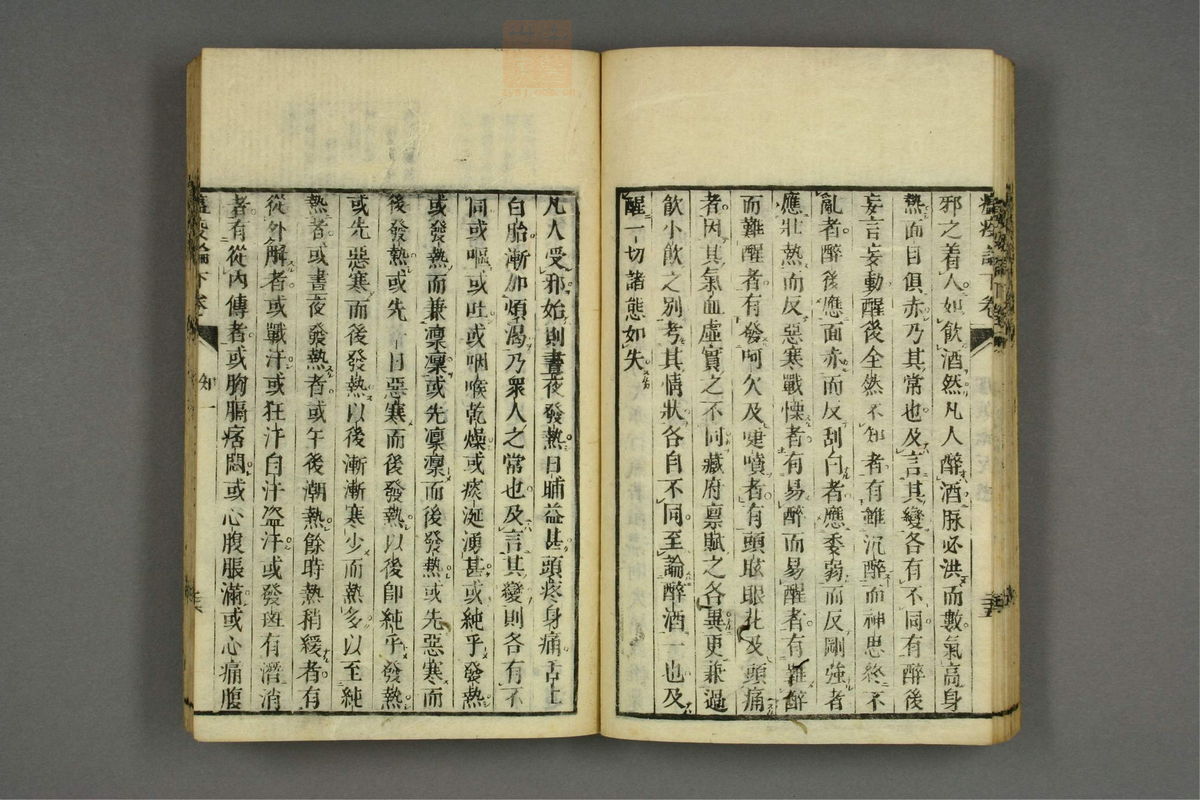 瘟疫論下卷
邪之着人如飲酒然凡人醉酒脉必洪而數氣高身
熱面目俱赤乃其常也及言其變各有不同有醉後
妄言妄動醒後全然不知者有雖沉醉而神思終不
亂者醉後應面赤而反刮白者應委弱而反剛強者
應壯熱而反惡寒戰慄者有易醉而易醒者有難醉
而難醒者有發呵欠及嚏噴者有頭眩眼花及頭痛
者因其氣血虛實之不同藏府禀賦之各異更兼過
飲小飲之別考其情狀各自不同至論醉酒一也及
醒一切諸態如失
凡人受邪始則晝夜發熱日晡益甚頭疼身痛舌上
白胎漸加煩渴乃衆人之常也及言其變則各有不
同或嘔或吐或咽喉乾燥或痰涎湧甚或純乎發熱
或發熱而兼凛凛或先凛凛而後發熱或先惡寒而
後發熱或先一日惡寒而後發熱以後卽純乎發熱
或先惡寒而後發熱以後漸漸寒少而熱多以至純
熱者或晝夜發熱者或午後潮熱餘時熱稍緩者有
從外解者或戰汗或狂汗自汗盗汗或發斑有潛消
者有從內傳者或胸膈痞悶或心腹脹滿或心痛腹
瘟疫論下卷 知一